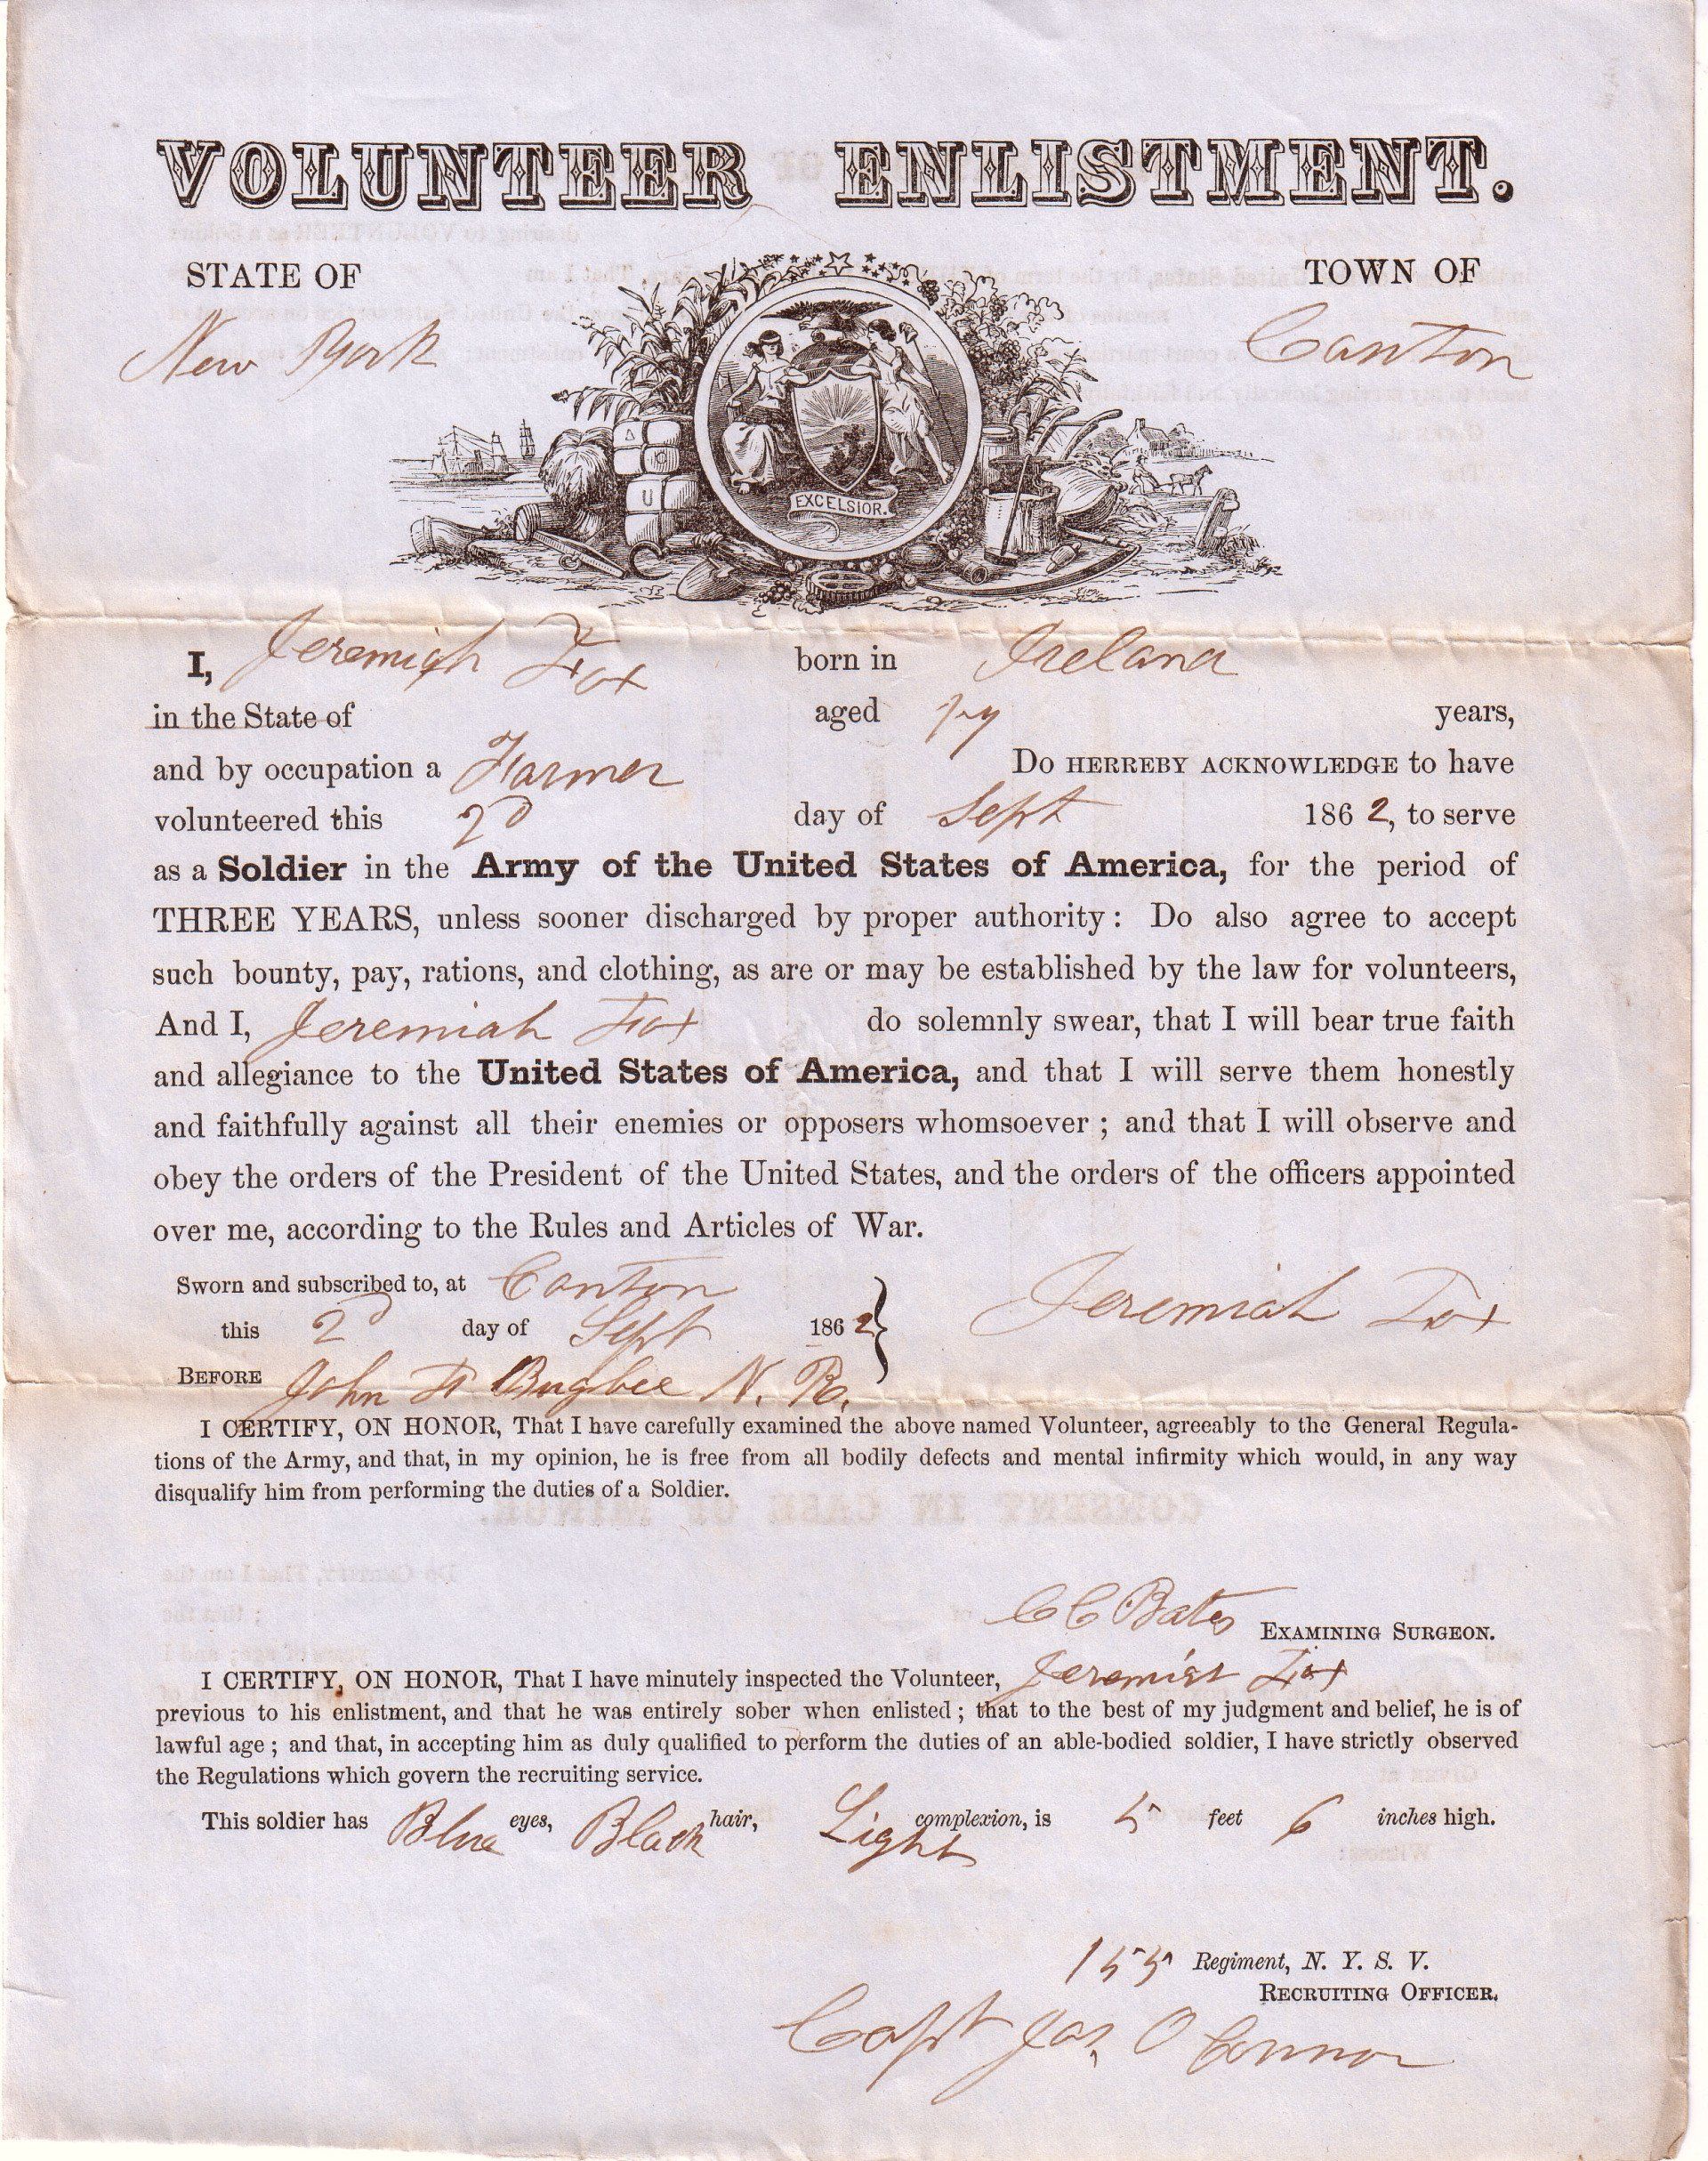 VOLUNTEER ENLISTMENT.
STATE OF TOWN OF
New York Canton
A
C
U
EXCELSIOR.
I, Jeremiah Fox born in Ireland
in the State of aged years,
and by occupation a Farmer Do HERREBY ACKNOWLEDGE to have
volunteered this 2d day of Sept 1862, to serve
as a Soldier in the Army of the United States of America, for the period of
THREE YEARS, unless sooner discharged by proper authority: Do also agree to accept
such bounty, pay, rations, and clothing, as are or may be established by the law for volunteers,
And I, Jeremiah Fox do solemnly swear, that I will bear true faith
and allegiance to the United States of America, and that I will serve them honestly
and faithfully against all their enemies or opposers whomsoever; and that I will observe and
obey the orders of the President of the United States, and the orders of the officers appointed
over me, according to the Rules and Articles of War.
Sworn and subscribed to, at Canton
this 2d day of Sept 1862 Jeremiah Fox
BEFORE John F Bugbee N. P.
I CERTIFY, ON HONOR, That I have carefully examined the above named Volunteer, agreeably to the General Regula-
tions of the Army, and that, in my opinion, he is free from all bodily defects and mental infirmity which would, in any way
disqualify him from performing the duties of a Soldier.
CONSENT IN CASE OF MINOR.
C C Bates EXAMINING SURGEON.
I CERTIFY, ON HONOR, That I have minutely inspected the Volunteer, Jeremiah Fox
previous to his enlistment, and that he was entirely sober when enlisted; that to the best of my judgment and belief, he is of
lawful age; and that, in accepting him as duly qualified to perform the duties of an able-bodied soldier, I have strictly observed
the Regulations which govern the recruiting service.
This soldier has Blue eyes, Black hair, Light complexion, is 5 feet 6 inches high.
155 Regiment, N. Y. S. V.
RECRUITING OFFICER.
Capt Jas. O Connor